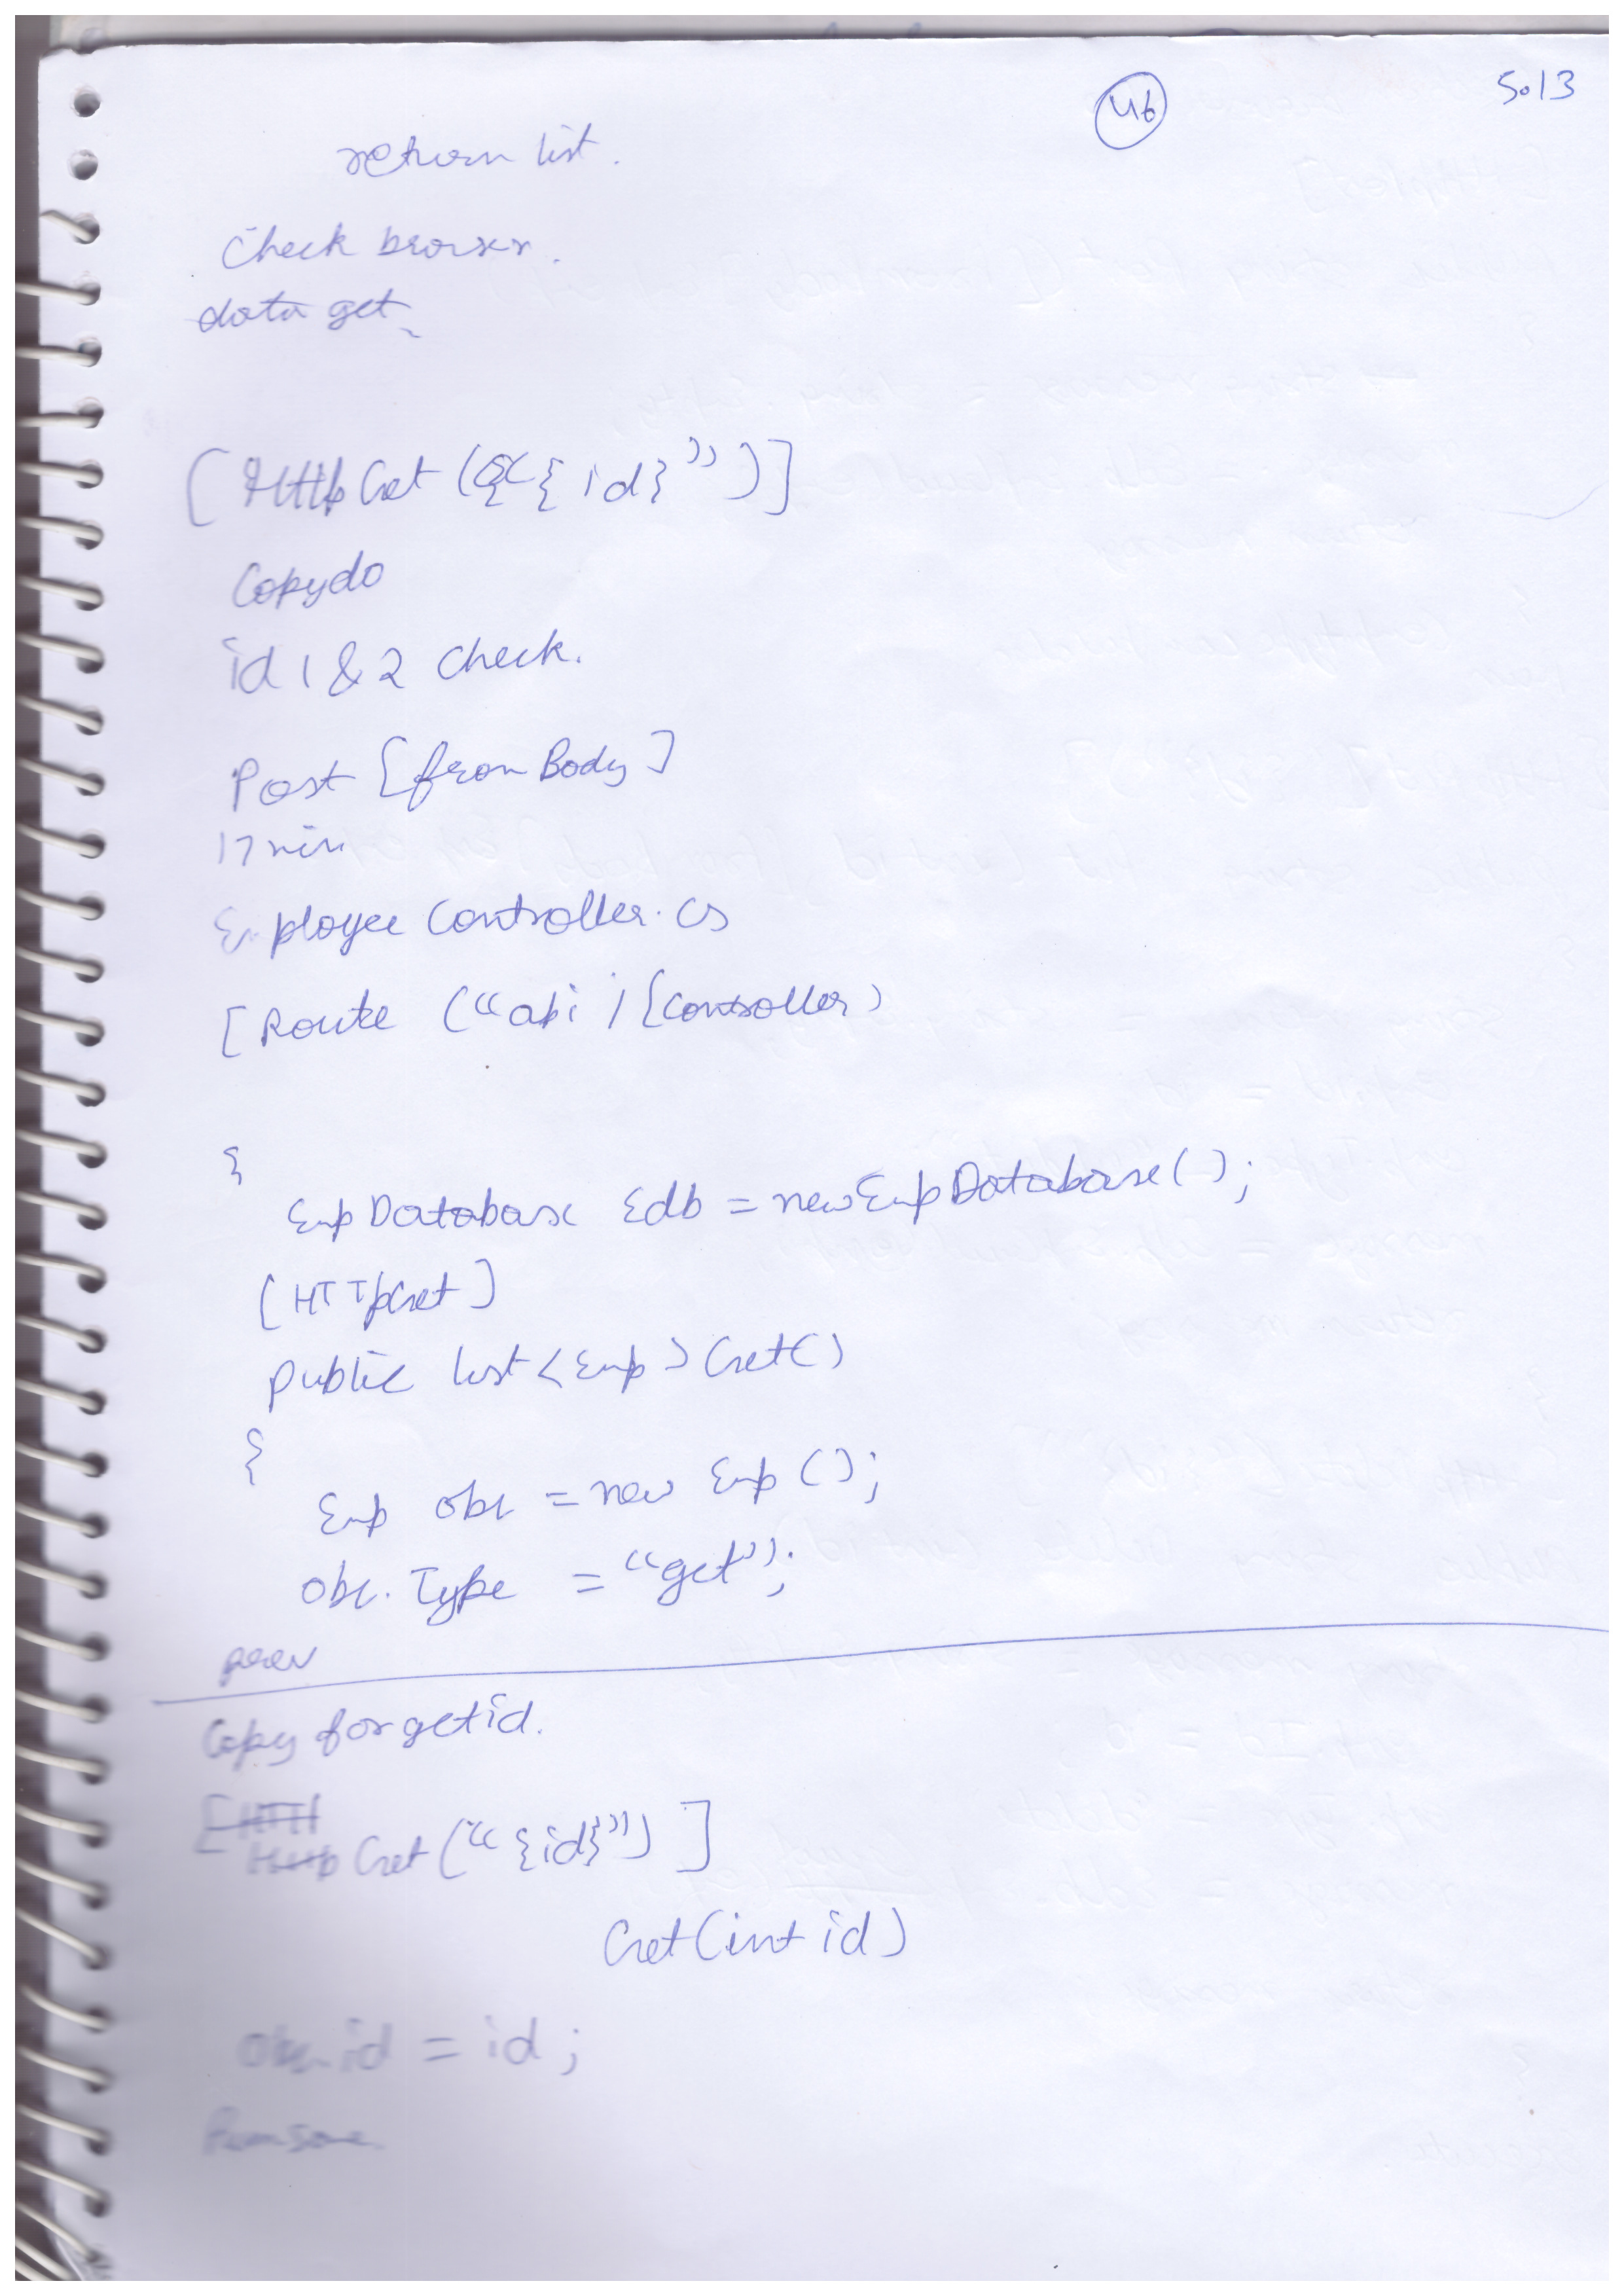 46
5.13
return list.
Check browser.
data get
[HttpGet("{id}")]
Copy do
id 1 & 2 check.
Post [from Body]
17 min
Employee Controller.cs
[Route ("api/[Controller)
{
Emp Database Edb = new Emp Database();
[HTTpGet]
public list<Emp> Get()
{
Emp obc = new Emp();
obc.Type = "get");
Copy for get id.
[HTTP
Http Get("{id}")]
Get(int id)
obc.id = id;